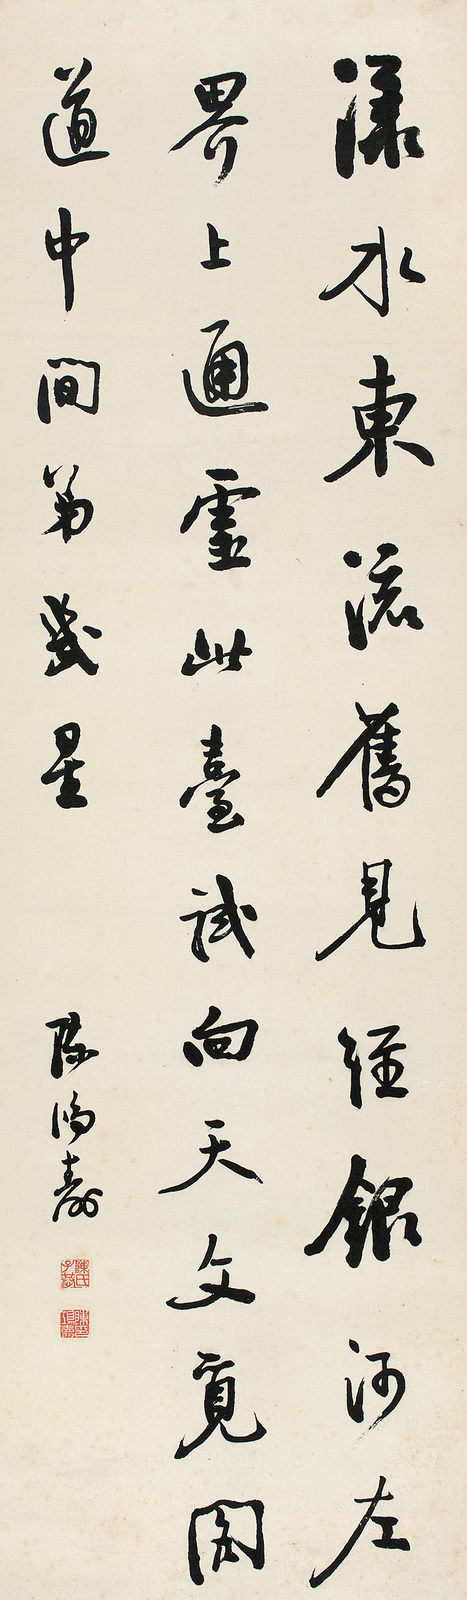 漾水東流舊見經銀河左
界上通靈此臺試向天文覓閣
道中間第幾星
陳鴻壽
陳氏子恭